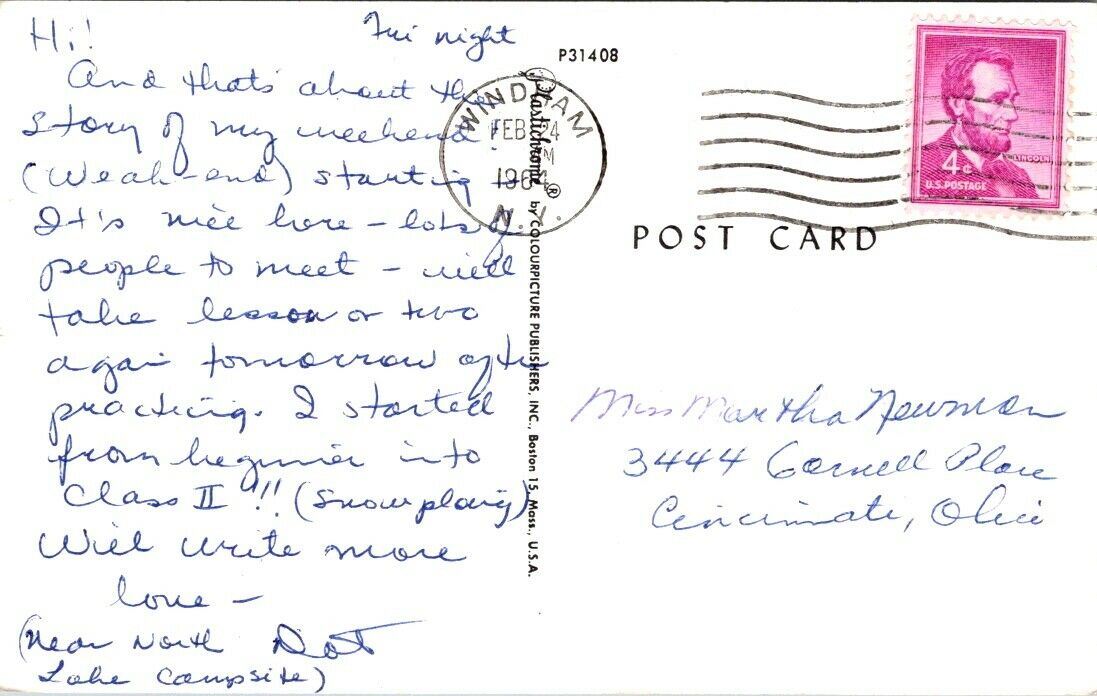 Hi! Fri night
And thats about the
story of my weekend!
(Weak-end) starting
It's nice here - lots of
people to meet - will
take lesson or two
again tomorrow after
practicing. I started
from beginner into
Class II !!! (snowplowing)
Will write more
love -
(Near North Dot
Lake Campsite)
P31408
Plastichrome® by COLOURPICTURE PUBLISHERS, INC., Boston 15, Mass., U.S.A.
WINDHAM
FEB 24
M
1964
N.Y.
4¢
LINCOLN
U.S. POSTAGE
POST CARD
Miss Martha Newman
3444 Cornell Place
Cincinnati, Ohio